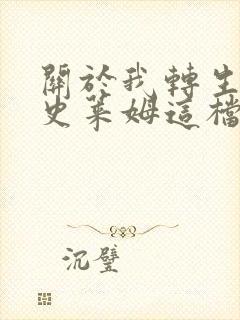 關於我轉生
史萊姆這檔
沉璧